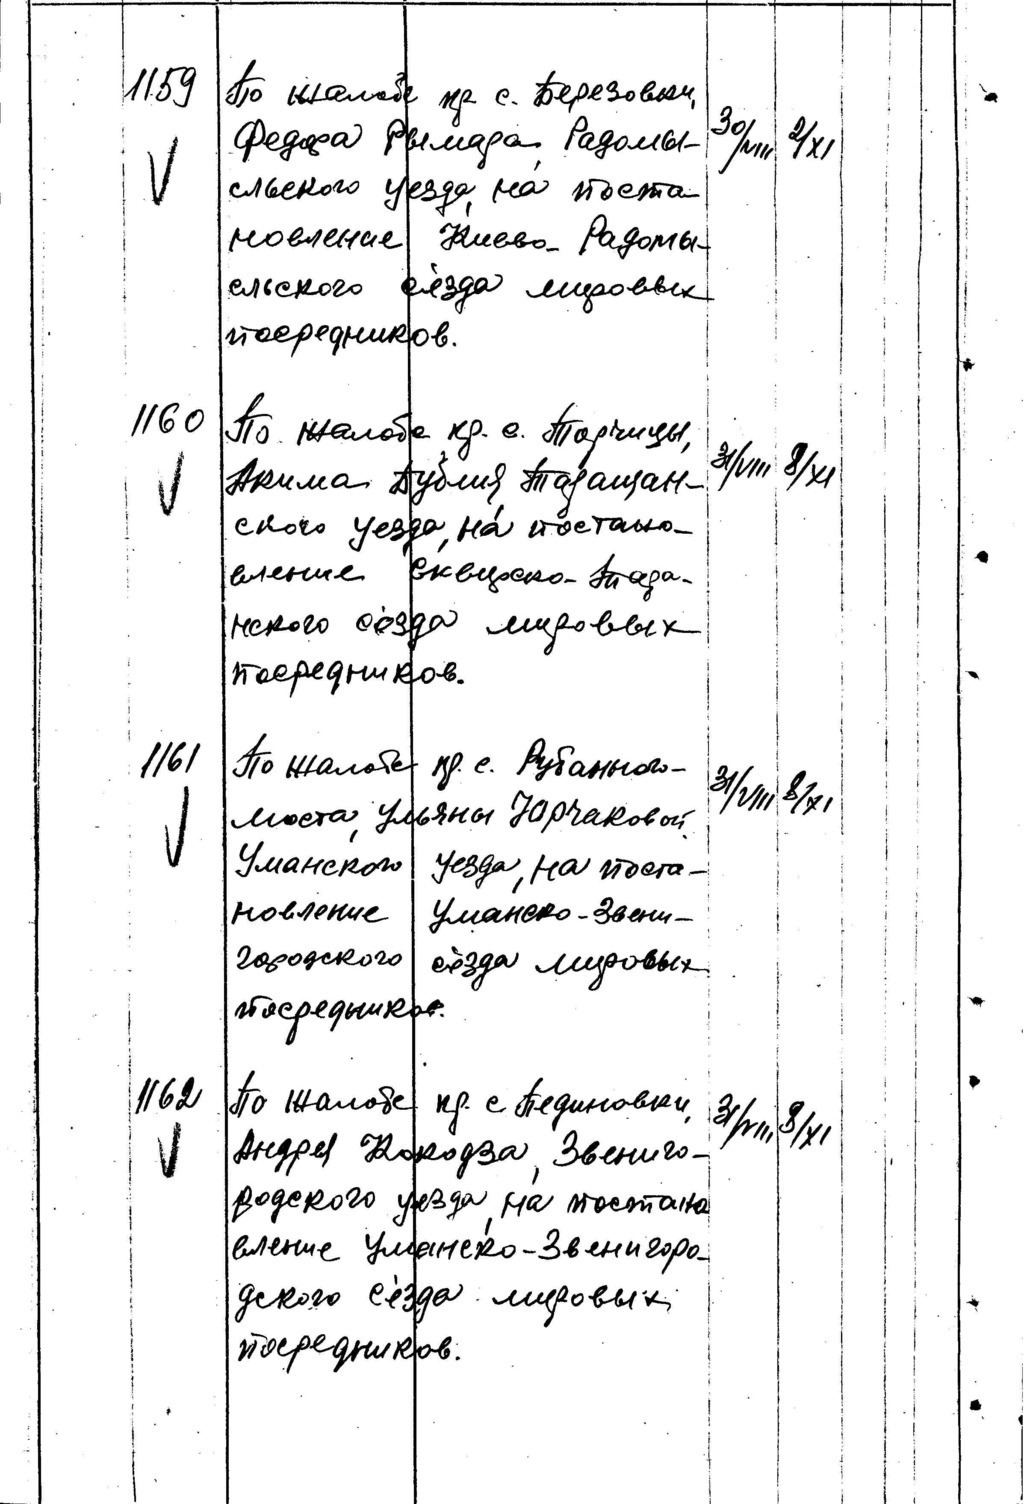 1159 По жалобе кр с. Березовки,
Федора Рымара, Радомы- 30/VIII 2/XI
сльского уезда, на поста-
новление Киево-Радомы-
сльского сьезда мировых
посредников.
1160 По жалобе кр. с. Торчицы,
Акима Бублия, Таращан- 31/VIII 8/XI
ского уезда, на постано-
вление Сквирско-Тара-
нского сьезда мировых
посредников.
1161 По жалобе кр. с. Рубанного-
моста, Ульяны Юрчаковой, 31/VIII 8/XI
Уманского уезда, на поста-
новление Уманско-Звени-
городского сьезда мировых
посредников.
1162 По жалобе кр. с. Пединовки,
Андрея Кокодза, Звениго- 31/VIII 8/XI
родского уезда, на постано
вление Уманско-Звенигоро-
дского сьезда мировых
посредников.